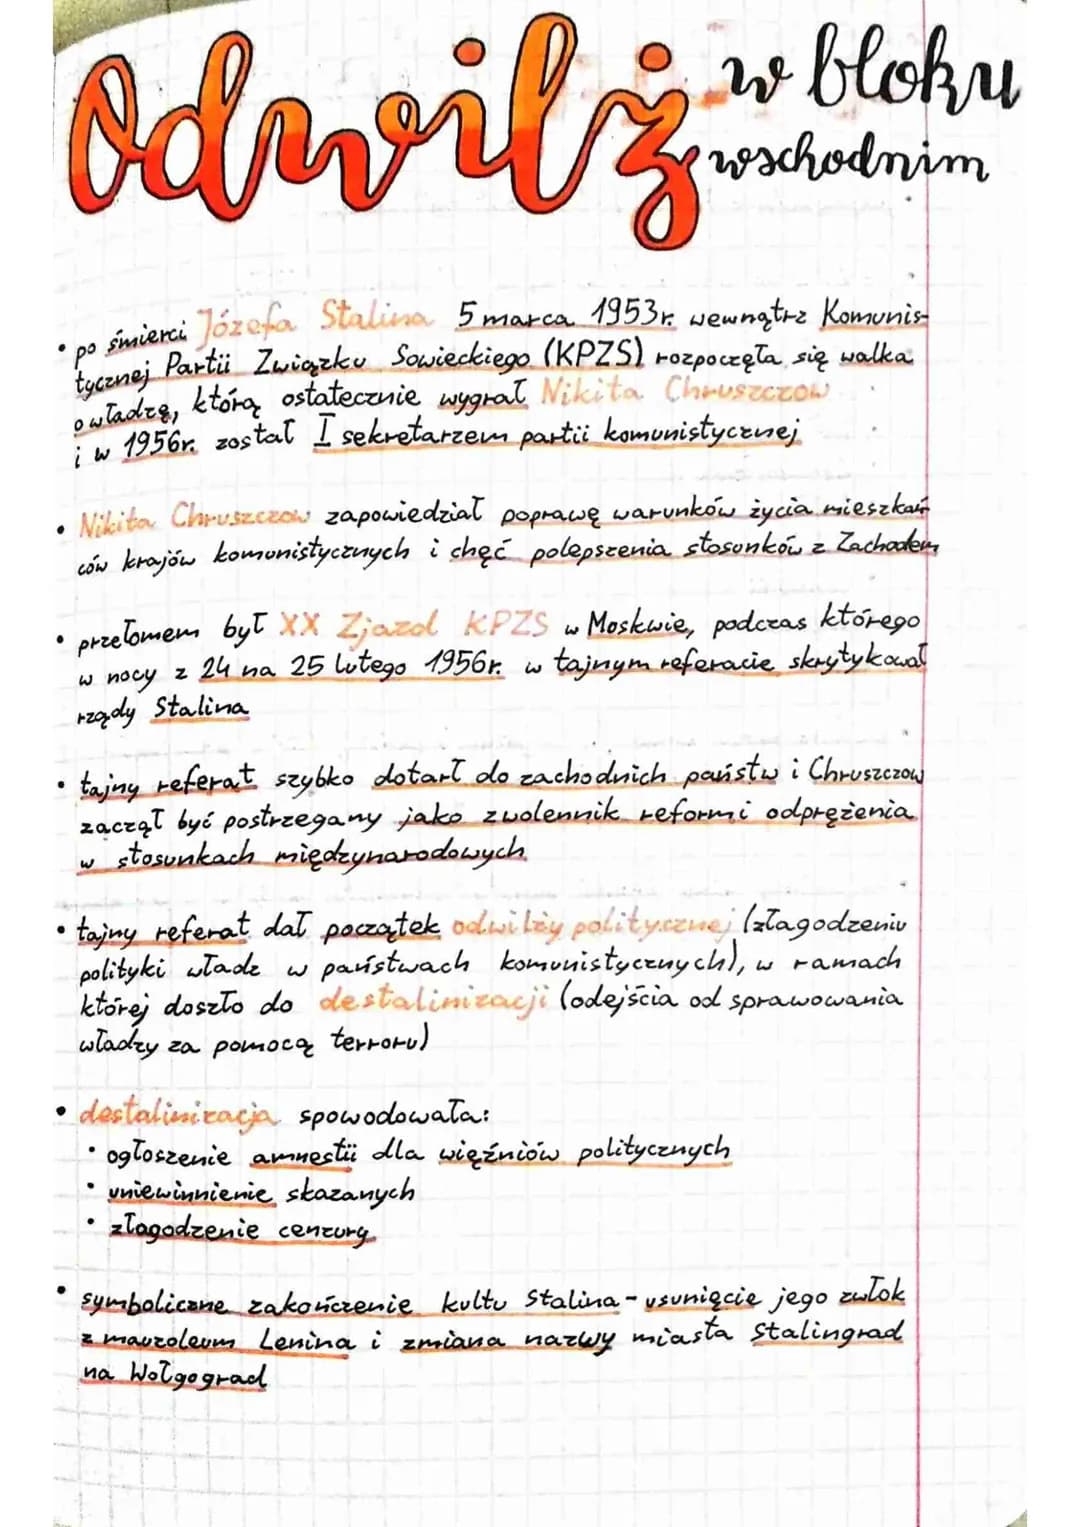 Odwilż w bloku
wschodnim
• po śmierci Józefa Stalina 5 marca 1953r. wewnątrz Komunis-
tycznej Partii Związku Sowieckiego (KPZS) rozpoczęła się walka
o władzę, którą ostatecznie wygrał Nikita Chruszczow
i w 1956r. został I sekretarzem partii komunistycznej
• Nikita Chruszczow zapowiedział poprawę warunków życia mieszkań
ców krajów komunistycznych i chęć polepszenia stosunków z Zachodem
• przełomem był XX Zjazd KPZS w Moskwie, podczas którego
w nocy z 24 na 25 lutego 1956r. w tajnym referacie skrytykował
rządy Stalina
• tajny referat szybko dotarł do zachodnich państw i Chruszczow
zaczął być postrzegany jako zwolennik reform i odprężenia
w stosunkach międzynarodowych
• tajny referat dał początek odwilży politycznej (złagodzeniu
polityki władz w państwach komunistycznych), w ramach
której doszło do destalinizacji (odejścia od sprawowania
władzy za pomocą terroru)
• destalinizacja spowodowała:
• ogłoszenie amnestii dla więźniów politycznych
• uniewinnienie skazanych
• złagodzenie cenzury
• symboliczne zakończenie kultu Stalina - usunięcie jego zwłok
z mauzoleum Lenina i zmiana nazwy miasta Stalingrad
na Wołgograd